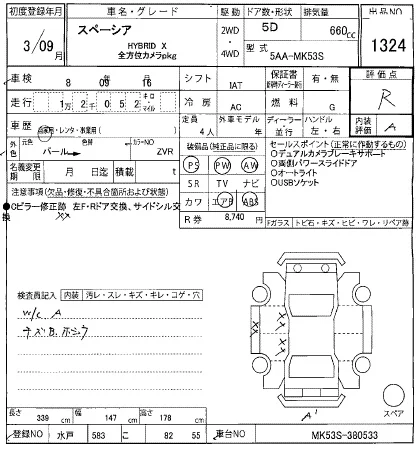 初度登録年月 車名・グレード 駆動 ドア数・形状 排気量 出品NO
3/09月 スペーシア HYBRID X 全方位カメラpkg 2WD・4WD 5D 660cc 1324
型式 5AA-MK53S
車検 8 09 16 シフト IAT 保証書 有・無 評価点 R
走行 1万2千052 キロ・マイル 冷房 AC 燃料 G
車歴 自家用・レンタ・事業用( ) 定員 4人 年 外車モデル ディーラー・並行 ハンドル 左・右 内装 A
外装 元色 パール 色替 カラーNO ZVR
名義変更期限 月 日迄 積載 t
装備品(純正品に限る)
PS PW AW
SR TV ナビ
カワ エアB ABS
R券 8,740 円
セールスポイント(正常に作動するもの)
○デュアルカメラブレーキサポート
○両側パワースライドドア
○オートライト
○USBソケット
注意事項(欠品・修復・不具合箇所および状態)
●Cピラー修正跡 左F・Rドア交換、サイドシル交換
XX
Fガラス トビ石・キズ・ヒビ・ワレ・リペア跡
検査員記入 内装 汚レ・スレ・キズ・キレ・コゲ・穴
W/C A
XX
XX
XX
A'
スペア
長さ 339 cm 幅 147 cm 高さ 178 cm
登録NO 水戸 583 こ 82 55 車台NO MK53S-380533